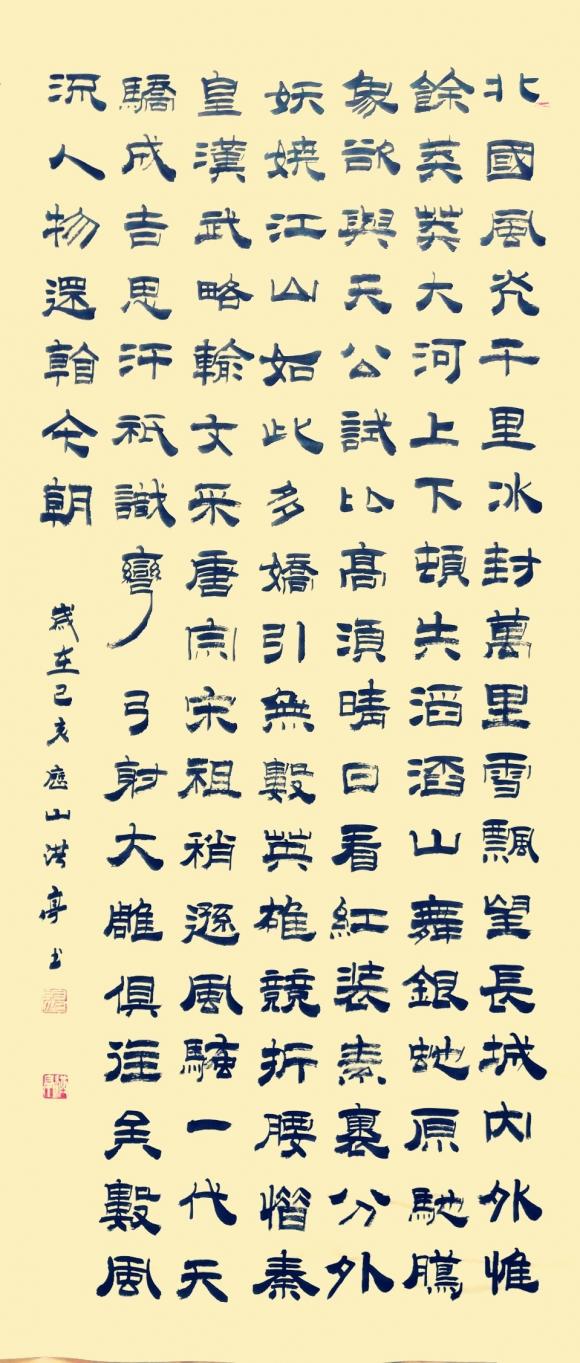 北國風光千里冰封萬里雪飄望長城內外惟
餘莽莽大河上下頓失滔滔山舞銀蛇原馳臘
象欲與天公試比高須晴日看紅裝素裹分外
妖嬈江山如此多嬌引無數英雄競折腰惜秦
皇漢武略輸文采唐宗宋祖稍遜風騷一代天
驕成吉思汗祇識彎弓射大雕俱往矣數風
流人物還看今朝
歲在己亥應山洪亭书